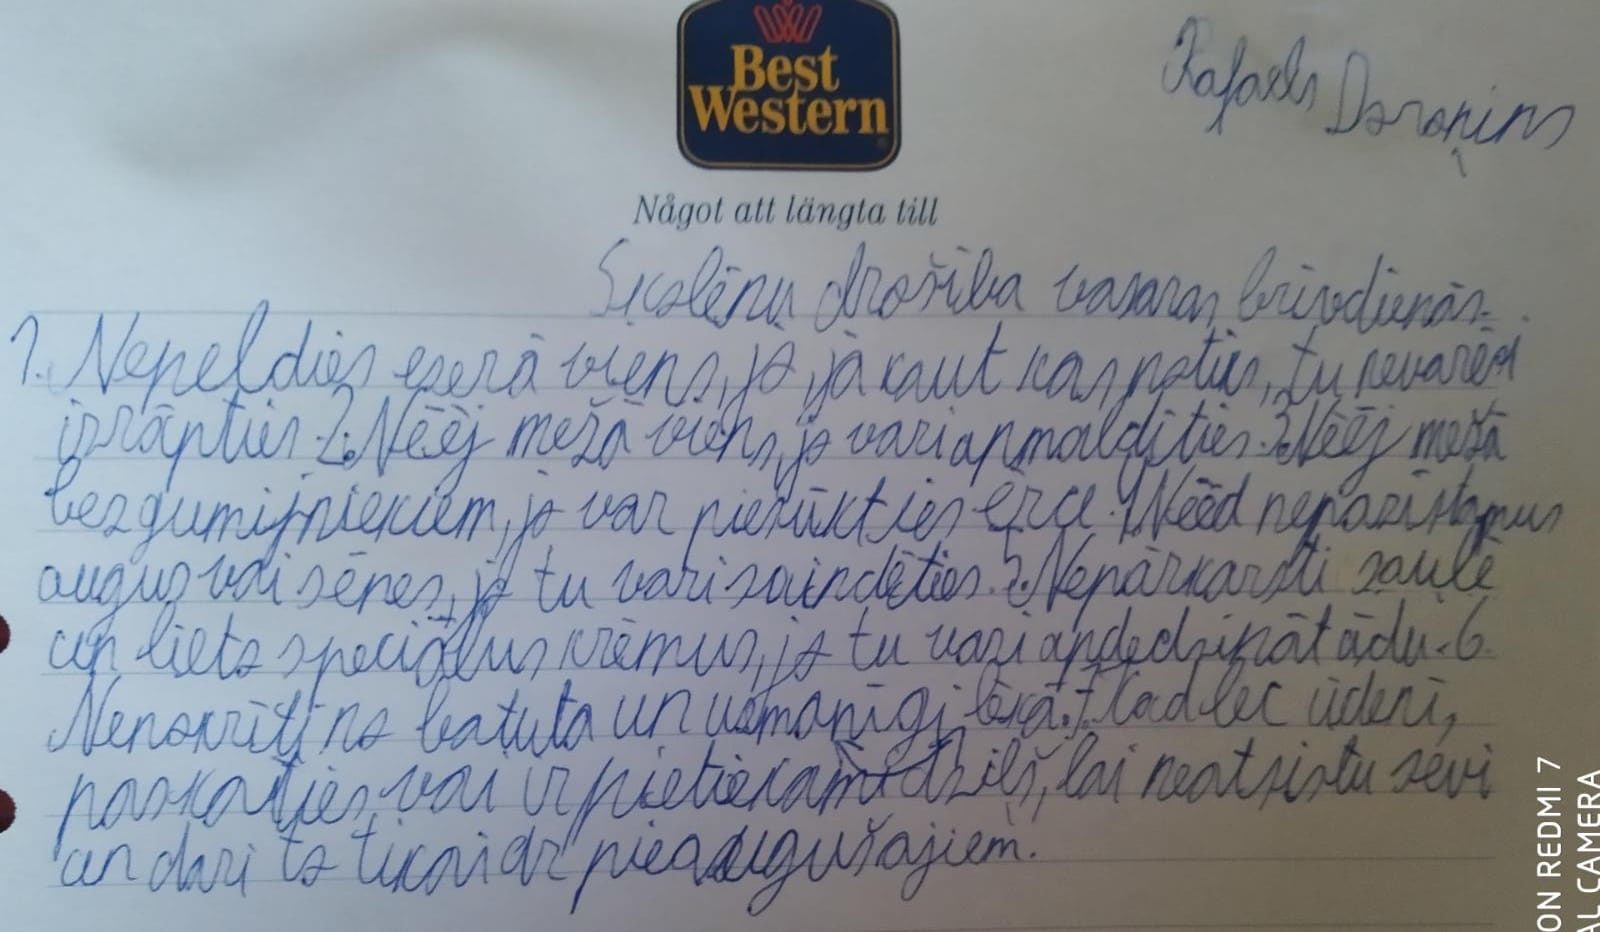 Best
Western
Rafaels
Något att längta till
Skolēnu drošība vasaras brīvdienās.
1. Nepeldies ezerā viens, jo, ja kaut kas notiks, tu nevarēsi
izrāpties. 2. Nēēj mežā viens, jo vari apmaldīties. 3. Nēēj mežā
bez gumijniekiem, jo var piesūkties ērce. 4. Nēēd nepazīstamus
augus vai sēnes, jo tu vari saindēties. 5. Nepārkarsti saulē
un lieto speciālus krēmus, jo tu vari apdedzināt ādu. 6.
Nenokrīti no batuta un uzmanīgi lēkā. 7. Kad lec ūdenī,
paskaties vai ir pietiekami dziļš, lai neatsistu sevi
un dari to tikai ar pieaugušajiem.
ON REDMI 7
AL CAMERA